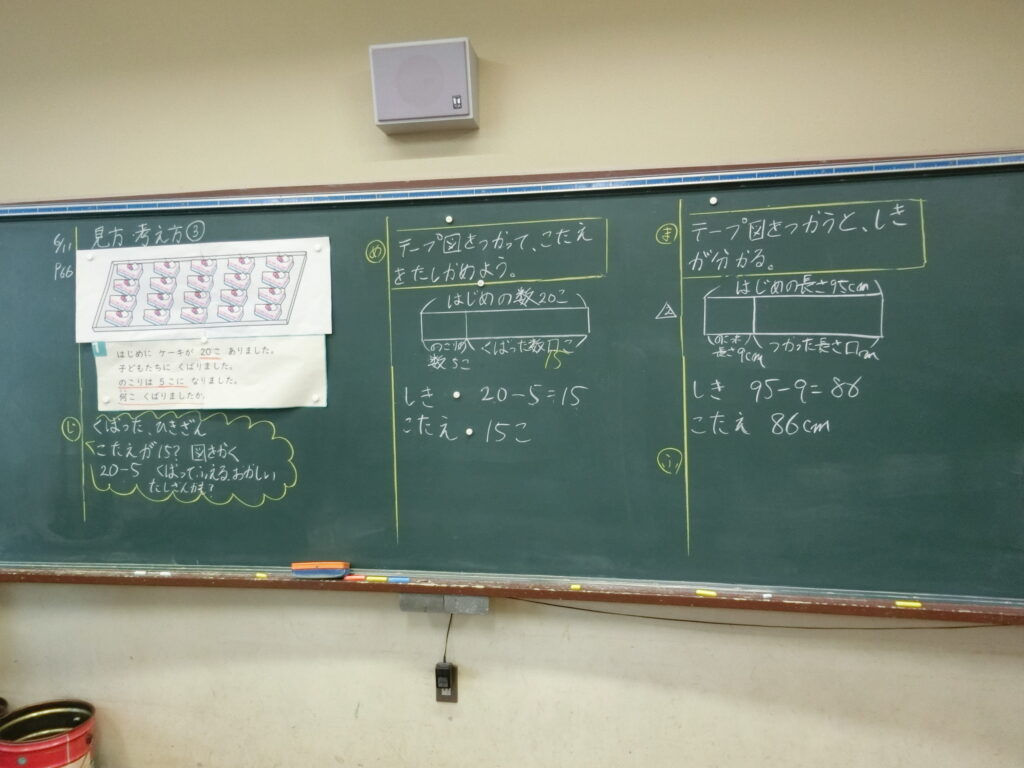 6/11
P66
見方 考え方③
はじめに ケーキが 20こ ありました。
子どもたちに くばりました。
のこりは 5こに なりました。
何こ くばりましたか。
じ
くばった、ひきざん
こたえが15? 図をかく
20-5 くばって、ふえる。おかしい
たしざんかも?
め
テープ図をつかって、こたえ
をたしかめよう。
はじめの数20こ
のこりの
数5こ
くばった数□こ
15
しき 20-5=15
こたえ 15こ
ま
テープ図をつかうと、しき
が分かる。
はじめの長さ95cm
長さ9cm
つかった長さ□cm
しき 95-9=86
こたえ 86cm
ふ